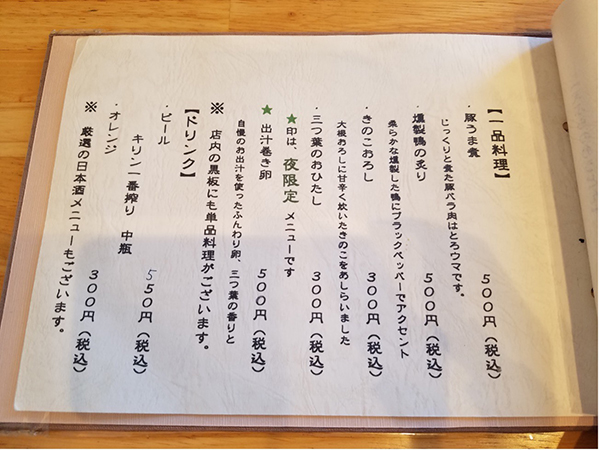 【一品料理】
・豚うま煮 500円(税込)
じっくりと煮た豚バラ肉はとろウマです。
・燻製鴨の炙り 500円(税込)
柔らかな燻製した鴨にブラックペッパーでアクセント
・きのこおろし 300円(税込)
大根おろしに甘辛く炊いたきのこをあしらいました
・三つ葉のおひたし 300円(税込)
★印は、夜限定 メニューです
★ 出汁巻き卵 500円(税込)
自慢のお出汁を使ったふんわり卵、三つ葉の香りと
※ 店内の黒板にも単品料理がございます。
【ドリンク】
・ビール
キリン一番搾り 中瓶 550円(税込)
・オレンジ 300円(税込)
※ 厳選の日本酒メニューもございます。